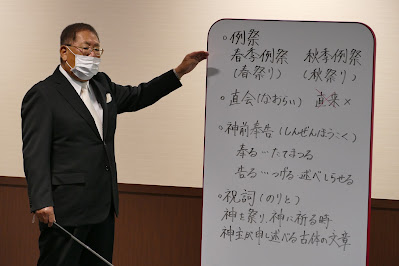 ○例祭
春季例祭　秋季例祭
(春祭り)　(秋祭り)
○直会(なおらい)　直来×
○神前奉告(しんぜんほうこく)
奉る…たてまつる
告る…つげる 述べしらせる
○祝詞(のりと)
神を祭り、神に祈る時、
神主が申し述べる古体の文章